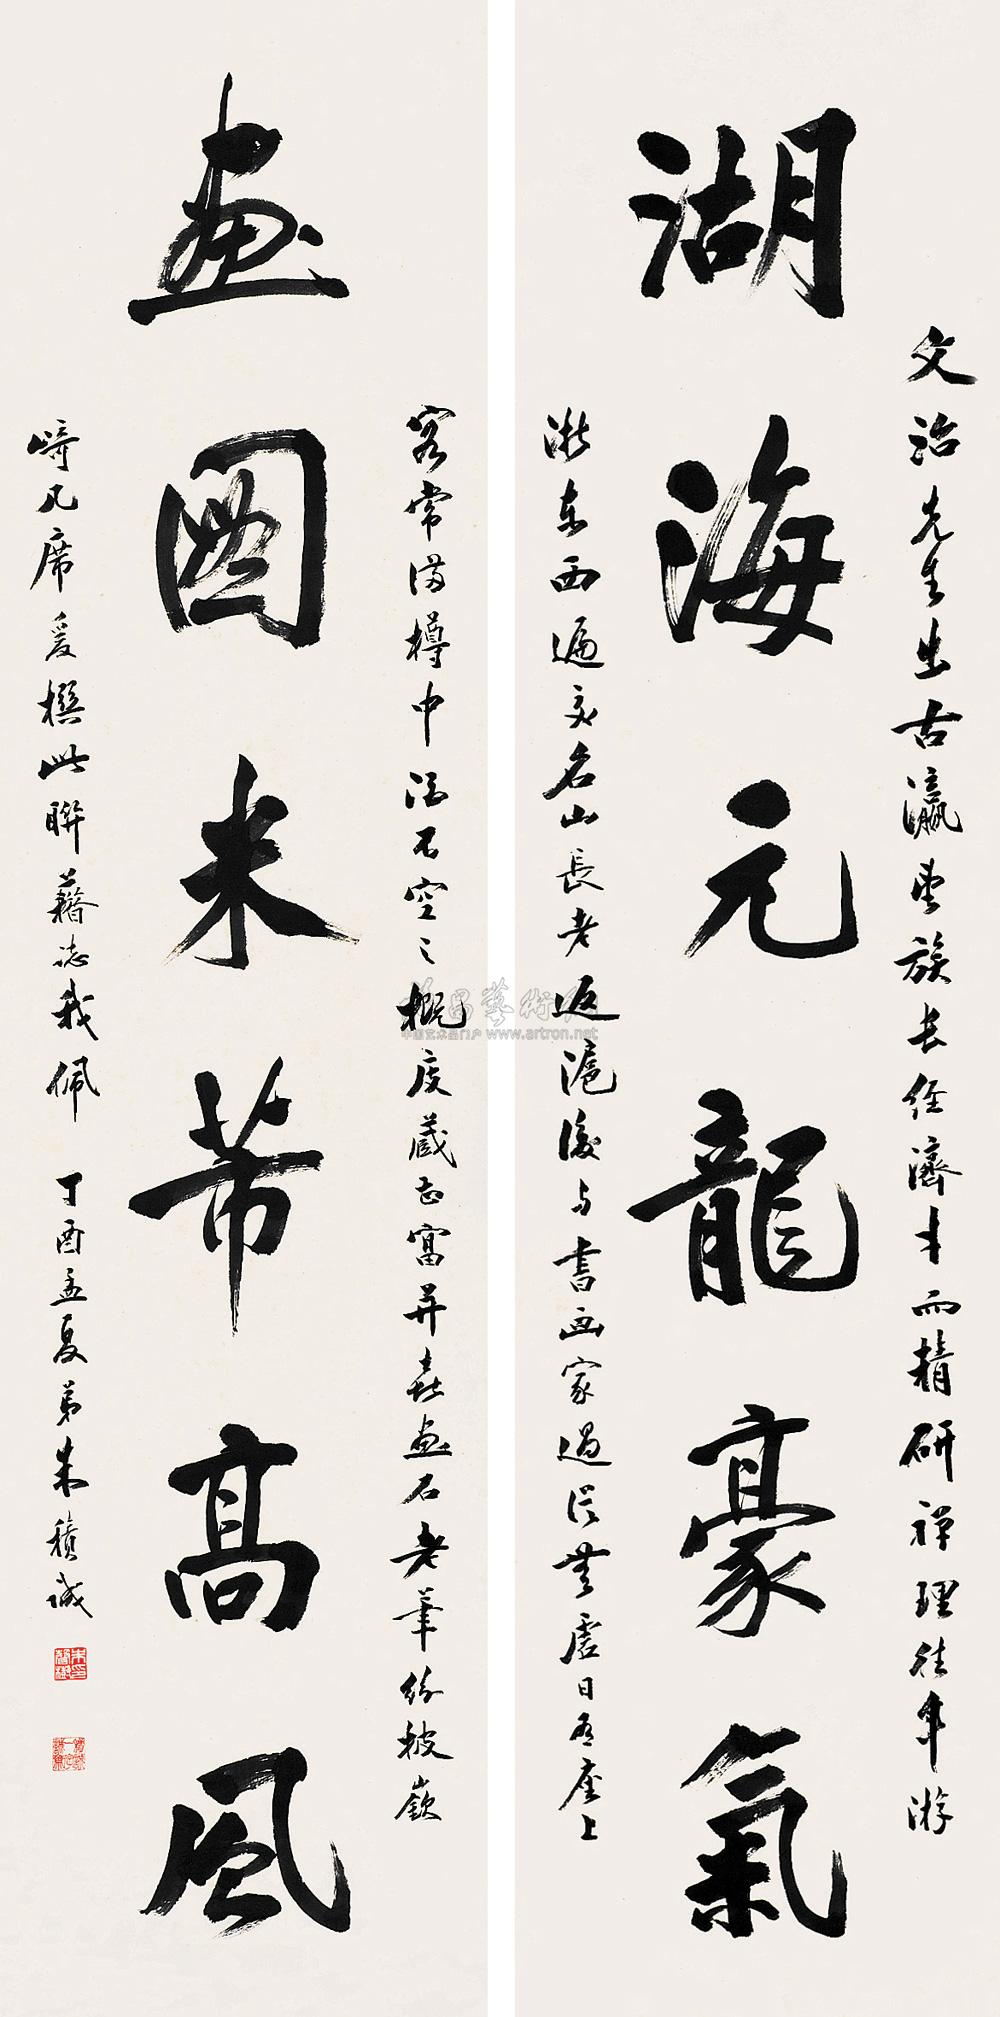 文治先生出古瀛望族長經濟才而精研禪理往年游
湖海元龍豪氣
浙東西遍交名山長老返滬後与書画家過從無虛日有座上
客常滿樽中酒不空之概庋蔵甚富并喜画石老筆紛披嶔
畫圖米芾高風
崎几席爰撰此聯藉誌我佩 丁酉孟夏弟朱積誠
www.artron.net